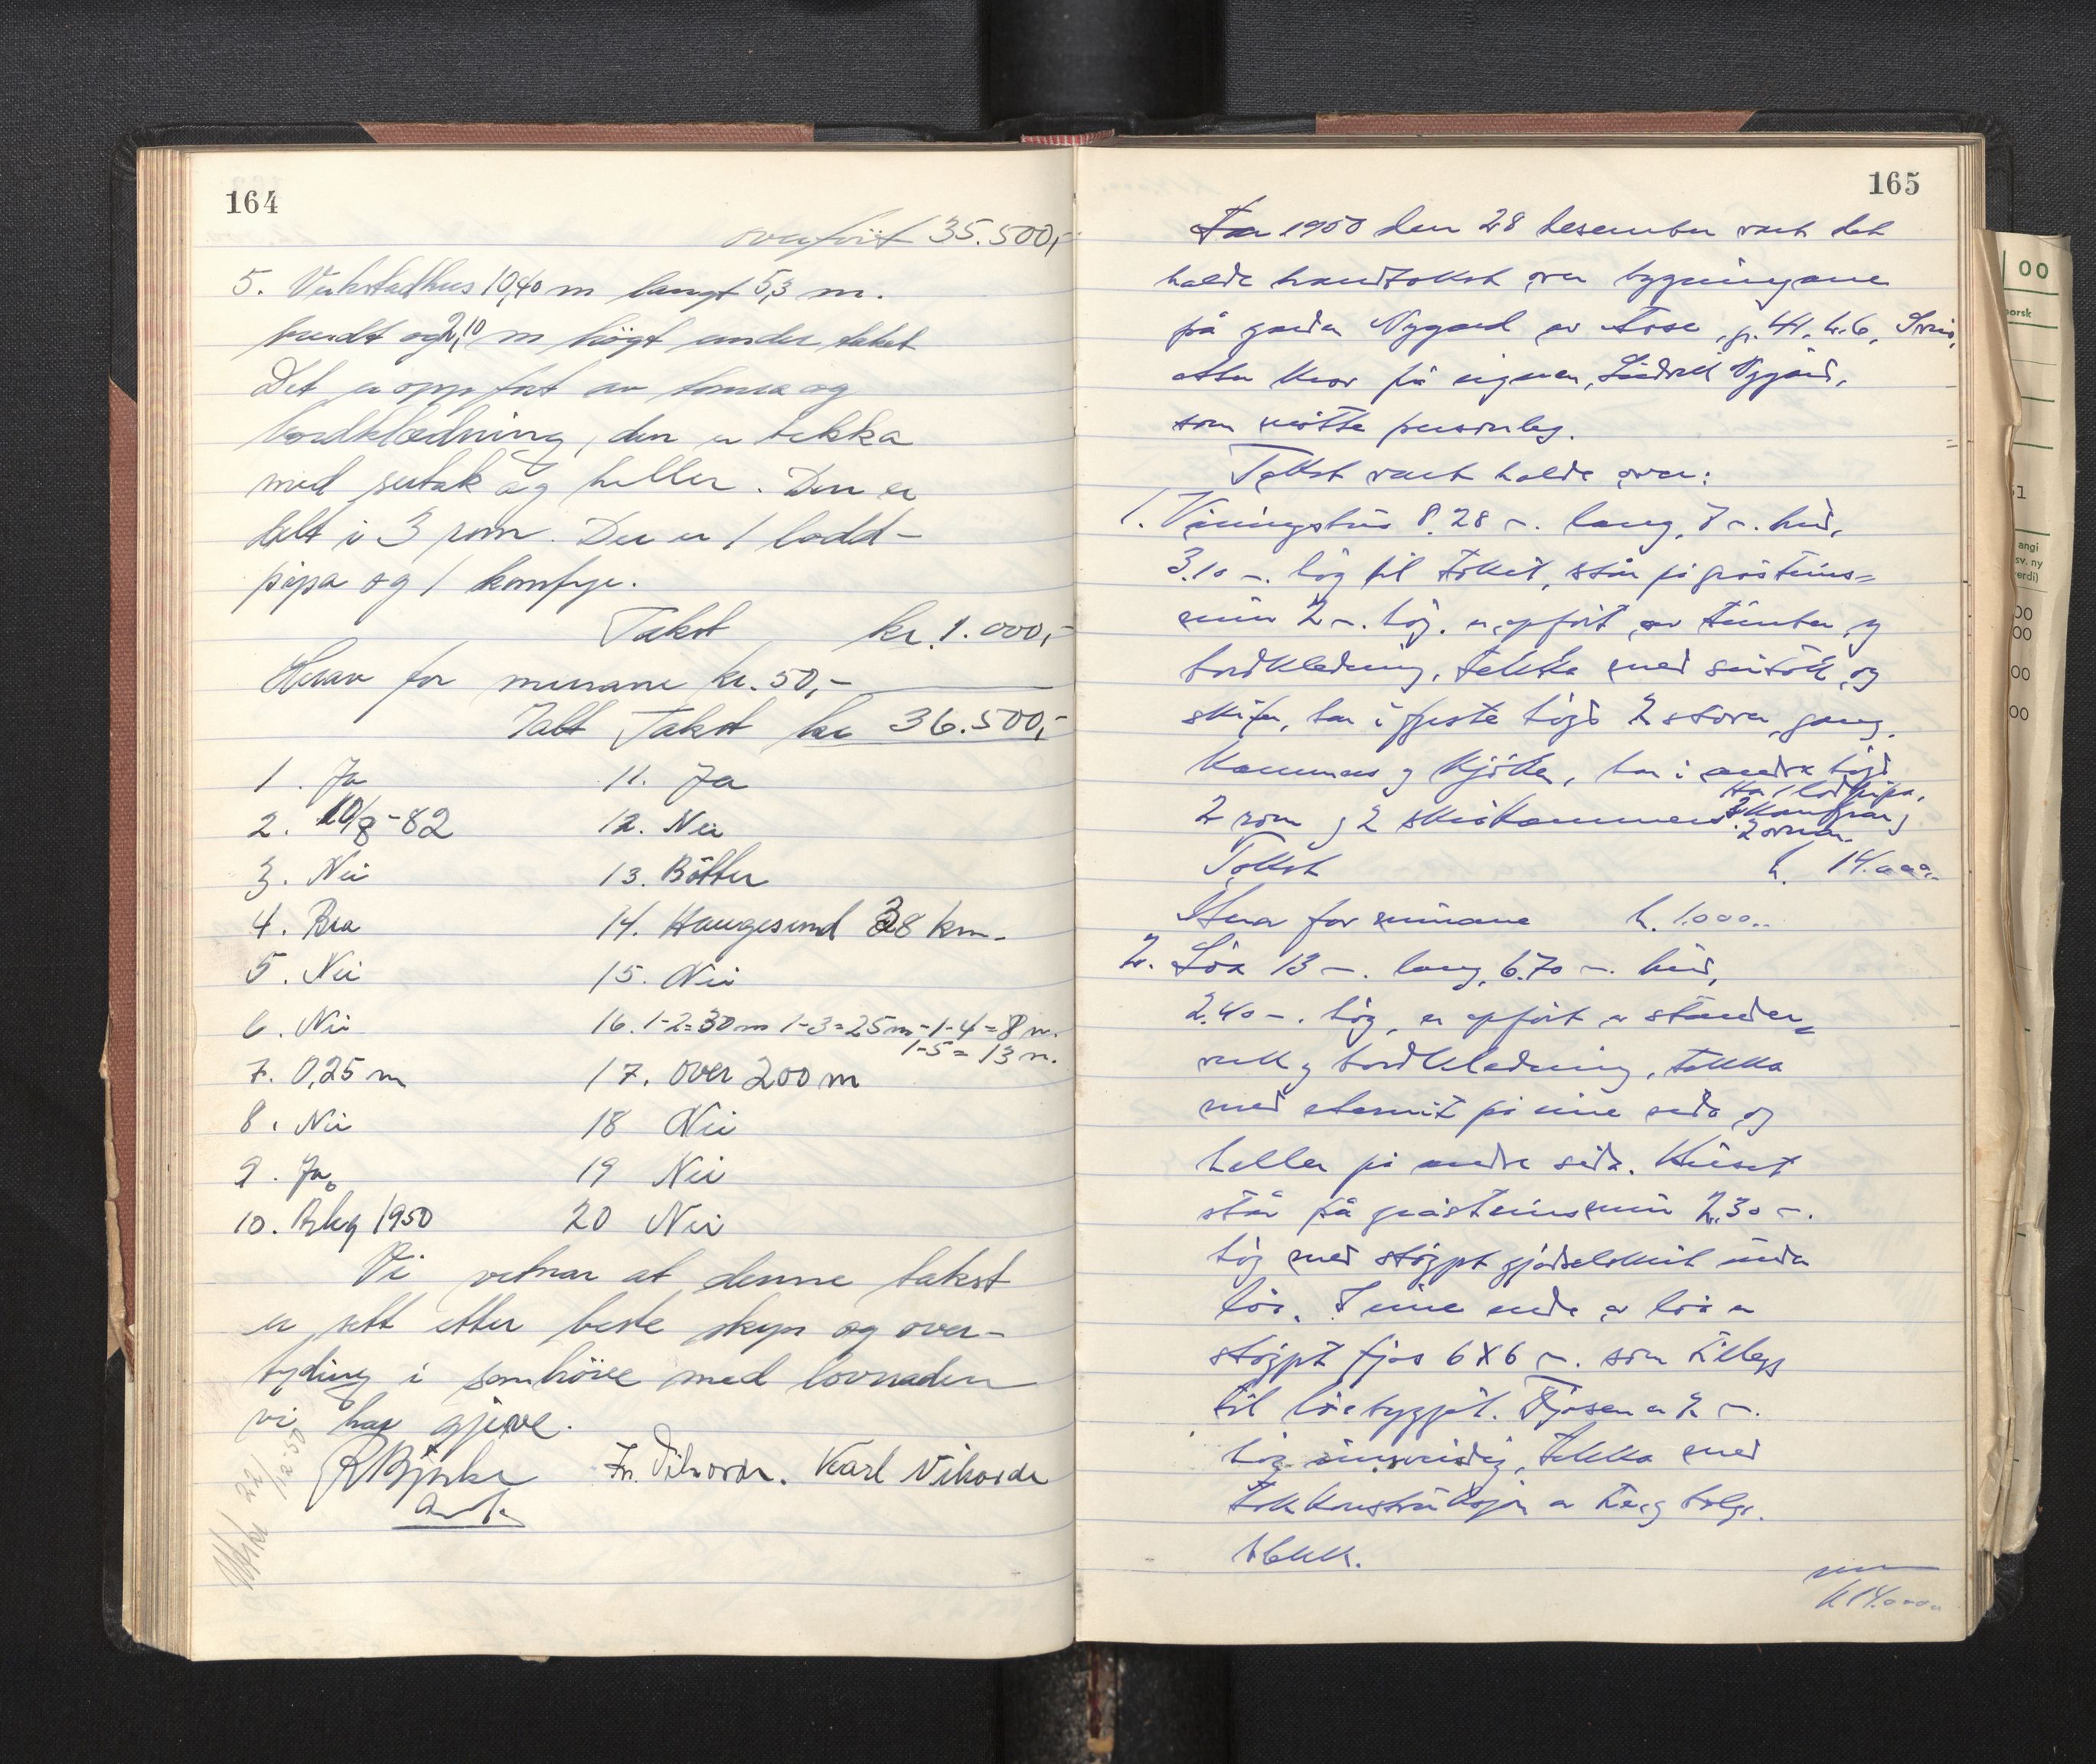 164
overført 35.500,-
5. Verkstadhus 10,40 m langt 5,3 m.
breidt og 2,10 m högt under taket
Det er oppført av tømra og
bordklædning, den er tekka
med sutak og heller. Den er
delt i 3 rom. Der er 1 lodd-
pipa og 1 komfyr.
Takst kr. 1.000,-
Herav for murane kr. 50,-
Ialt Takst kr 36.500,-
1. Ja
2. 10/8-82
3. Nei
4. Bra
5. Nei
6. Nei
7. 0,25 m
8. Nei
9. Ja
10. 1950
11. Ja
12. Nei
13. Bötter
14. Haugesund 38 km.
15. Nei
16. 1-2=30m 1-3=25m-1-4=8 m.
1-5=13 m.
17. over 200 m
18 Nei
19 Nei
20 Nei
Vi vitnar at denne takst
er sett etter beste skyn og over-
tyding i samhöve med lovnaden
vi har gjeve.
Karl Vikorde
22/12
165
1950 den 28 desember vart det
halde brandtakst over bygningane
på garden Nygard av gr. 41, br. 6,
etter krav frå eigaren, Nygård,
som møtte personleg.
Takst vart halde over:
1. Våningshus 8.28 m. lang, 7 m. brei,
3.10 m. høg til taket, står på gråsteins=
mur 2 m. høg. er opført av tømber og
bordkledning, tekka med sutak og
skifer, har i fyrste høgd 2 stover, gang,
kammers og kjøken, har i andre høgd
2 rom og 2 skråkammers. Har 1 lodpipa,
2 komfyrar og
2 omnar.
Takst kr. 14.000.-
Herav for murane kr. 1.000.-
2. Löa 13 m. lang, 6.70 m. brei,
2.40 m. høg, er opført av stender=
verk og bordkledning, tekka
med eternit på eine sida og
heller på andre sida. Huset
står på gråsteinsmur 2.30 m.
høg med støypt gjødselskut under
löa. I eine ende av löa er
støypt fjos 6x6 m. som tillegg
til löebygget. Fjosen er 2 m.
høg innvendig, tekka med
takkonstruksjon av tre og bølge-
blekk.
kr 14.000.-